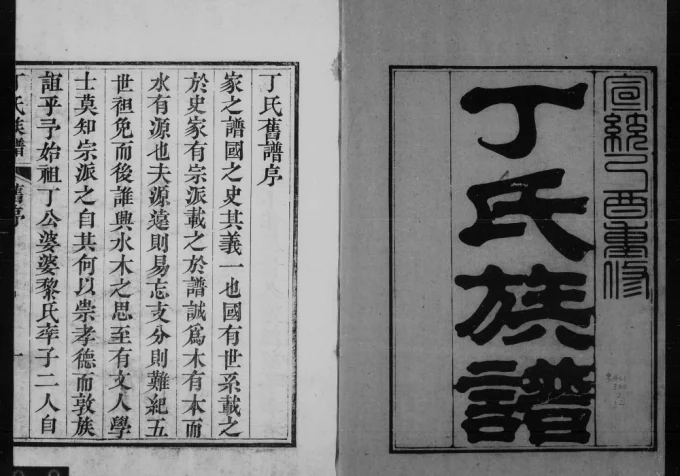 宣統乙酉重修
丁氏族譜
丁氏舊譜序
家之譜國之史其義一也國有世系載之
於史家有宗派載之於譜誠爲木有本而
水有源也夫源遠則易忘支分則難紀五
世祖免而後誰興水木之思至有文人學
士莫知宗派之自其何以崇孝德而敦族
誼乎予始祖丁公婆婆黎氏率子二人自
丁氏族譜
舊序
一